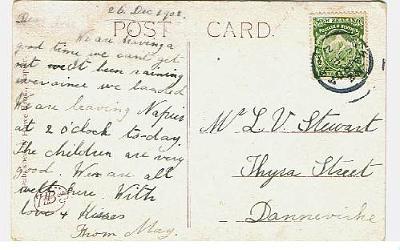 26. Dec 1908.
POST CARD
Dear
We are having a
good time we cant get
out it been raining
ever since we landed
We are leaving Napier
at 2 o'clock to-day.
The children are very
good. We are all
well here. With
love & Kisses
From May.
NEW ZEALAND
Mr L. V. Stewart
Thyra Street
Dannevirke